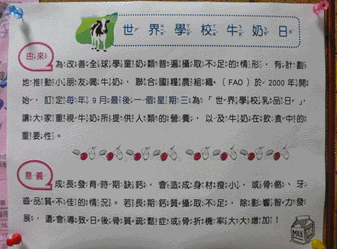 世界學校牛奶日
由來
為改善全球學童奶類普遍攝取不足的情形，有計劃
地推動小朋友喝牛奶，聯合國糧農組織（FAO）於2000年開
始，訂定每年9月最後一個星期三為「世界學校乳品日」，
讓大家重視牛奶所提供人類的營養，以及牛奶在飲食中的
重要性。
意義
成長發育時期缺鈣，會造成身材瘦小，或骨骼、牙
齒品質不佳的情況。若長期鈣質攝取不足，除影響智力發
展，還會導致日後骨質疏鬆症或骨折機率大大增加！
MILK